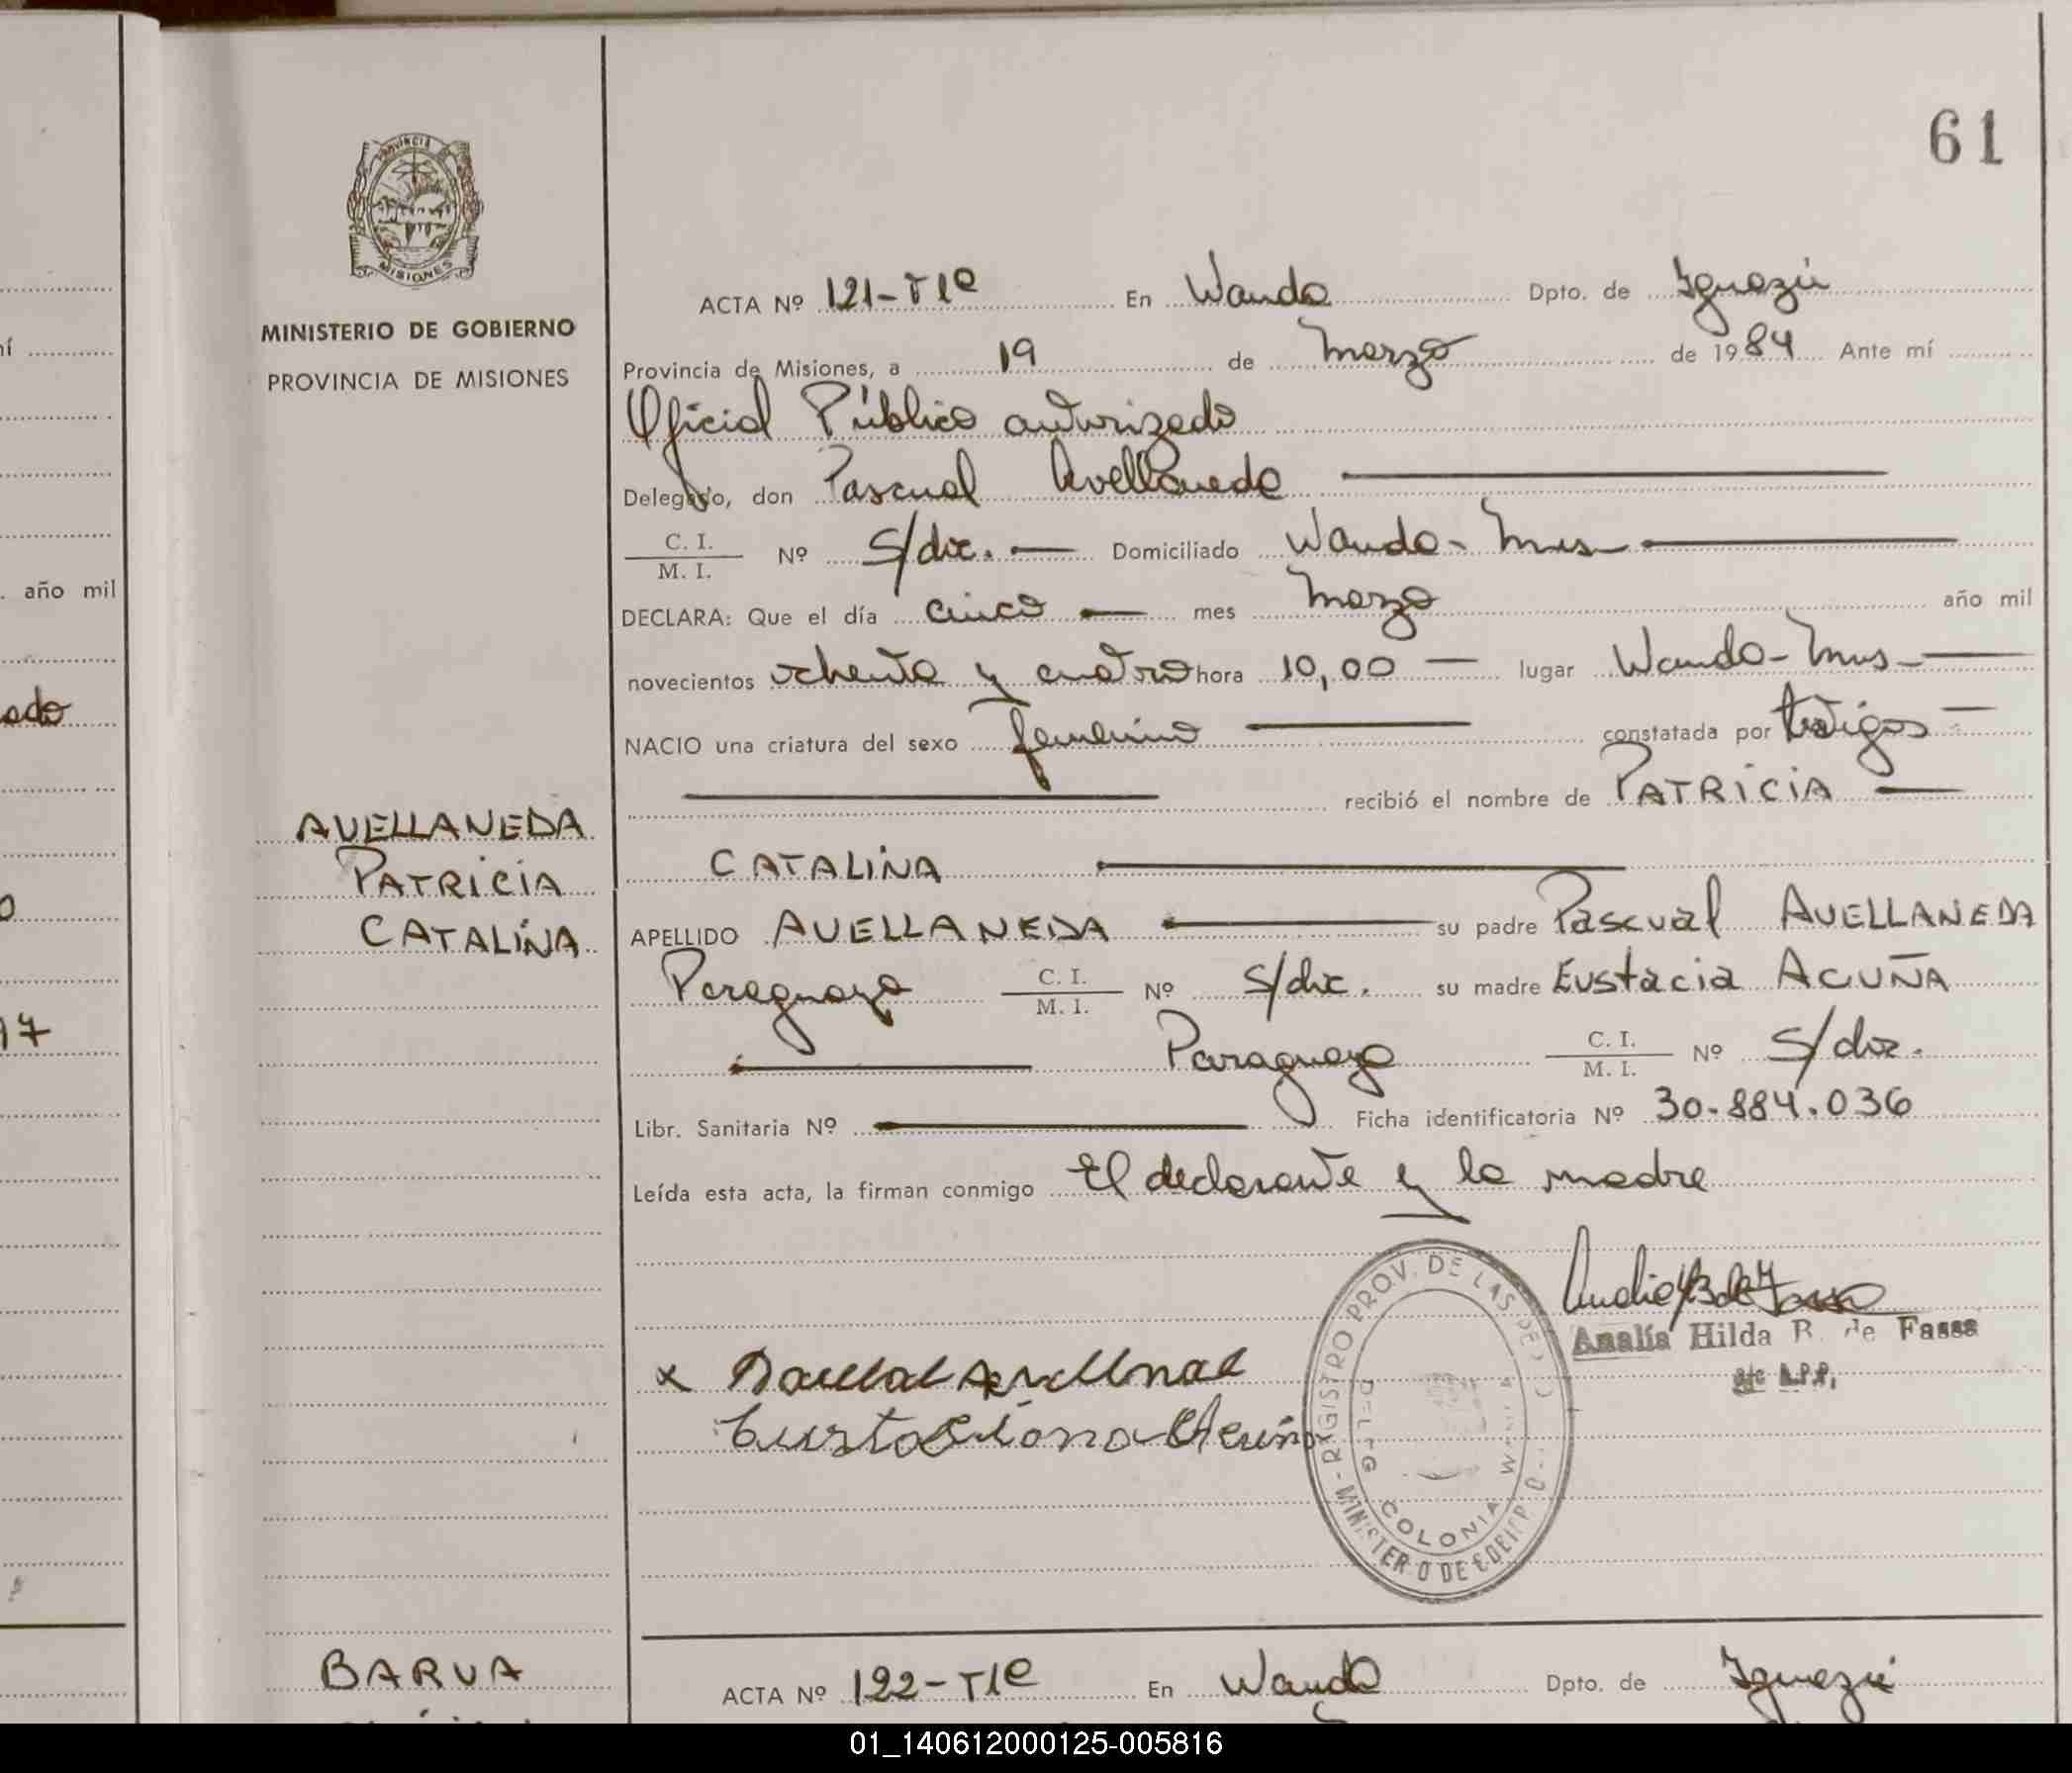 61
PROVINCIA DE
MISIONES
MINISTERIO DE GOBIERNO
PROVINCIA DE MISIONES
ACTA Nº 121-T1º En Wanda Dpto. de Iguazú
Provincia de Misiones, a 19 de Marzo de 1984 Ante mí
Oficial Público autorizado
Delegado, don Pascual Avellaneda
C. I.
M. I. Nº S/doc. Domiciliado Wanda - Mnes
DECLARA: Que el día cinco mes Marzo año mil
novecientos ochenta y cuatro hora 10,00 lugar Wanda - Mnes
NACIO una criatura del sexo femenino constatada por testigos
recibió el nombre de PATRICIA
CATALINA
AVELLANEDA
PATRICIA
CATALINA
APELLIDO AVELLANEDA su padre Pascual AVELLANEDA
Paraguaya C. I.
M. I. Nº S/doc. su madre Eustacia ACUÑA
Paraguaya C. I.
M. I. Nº S/doc.
Libr. Sanitaria Nº Ficha identificatoria Nº 30.884.036
Leída esta acta, la firman conmigo El declarante y la madre
Analía Hilda B. de Fassa
a/c
REGISTRO PROV. DE LAS
MINISTERIO DE GOBIERNO
DELEG
COLONIA WANDA
BARUA
ACTA Nº 122-T1º En Wanda Dpto. de Iguazú
año mil
ado
17
01_140612000125-005816